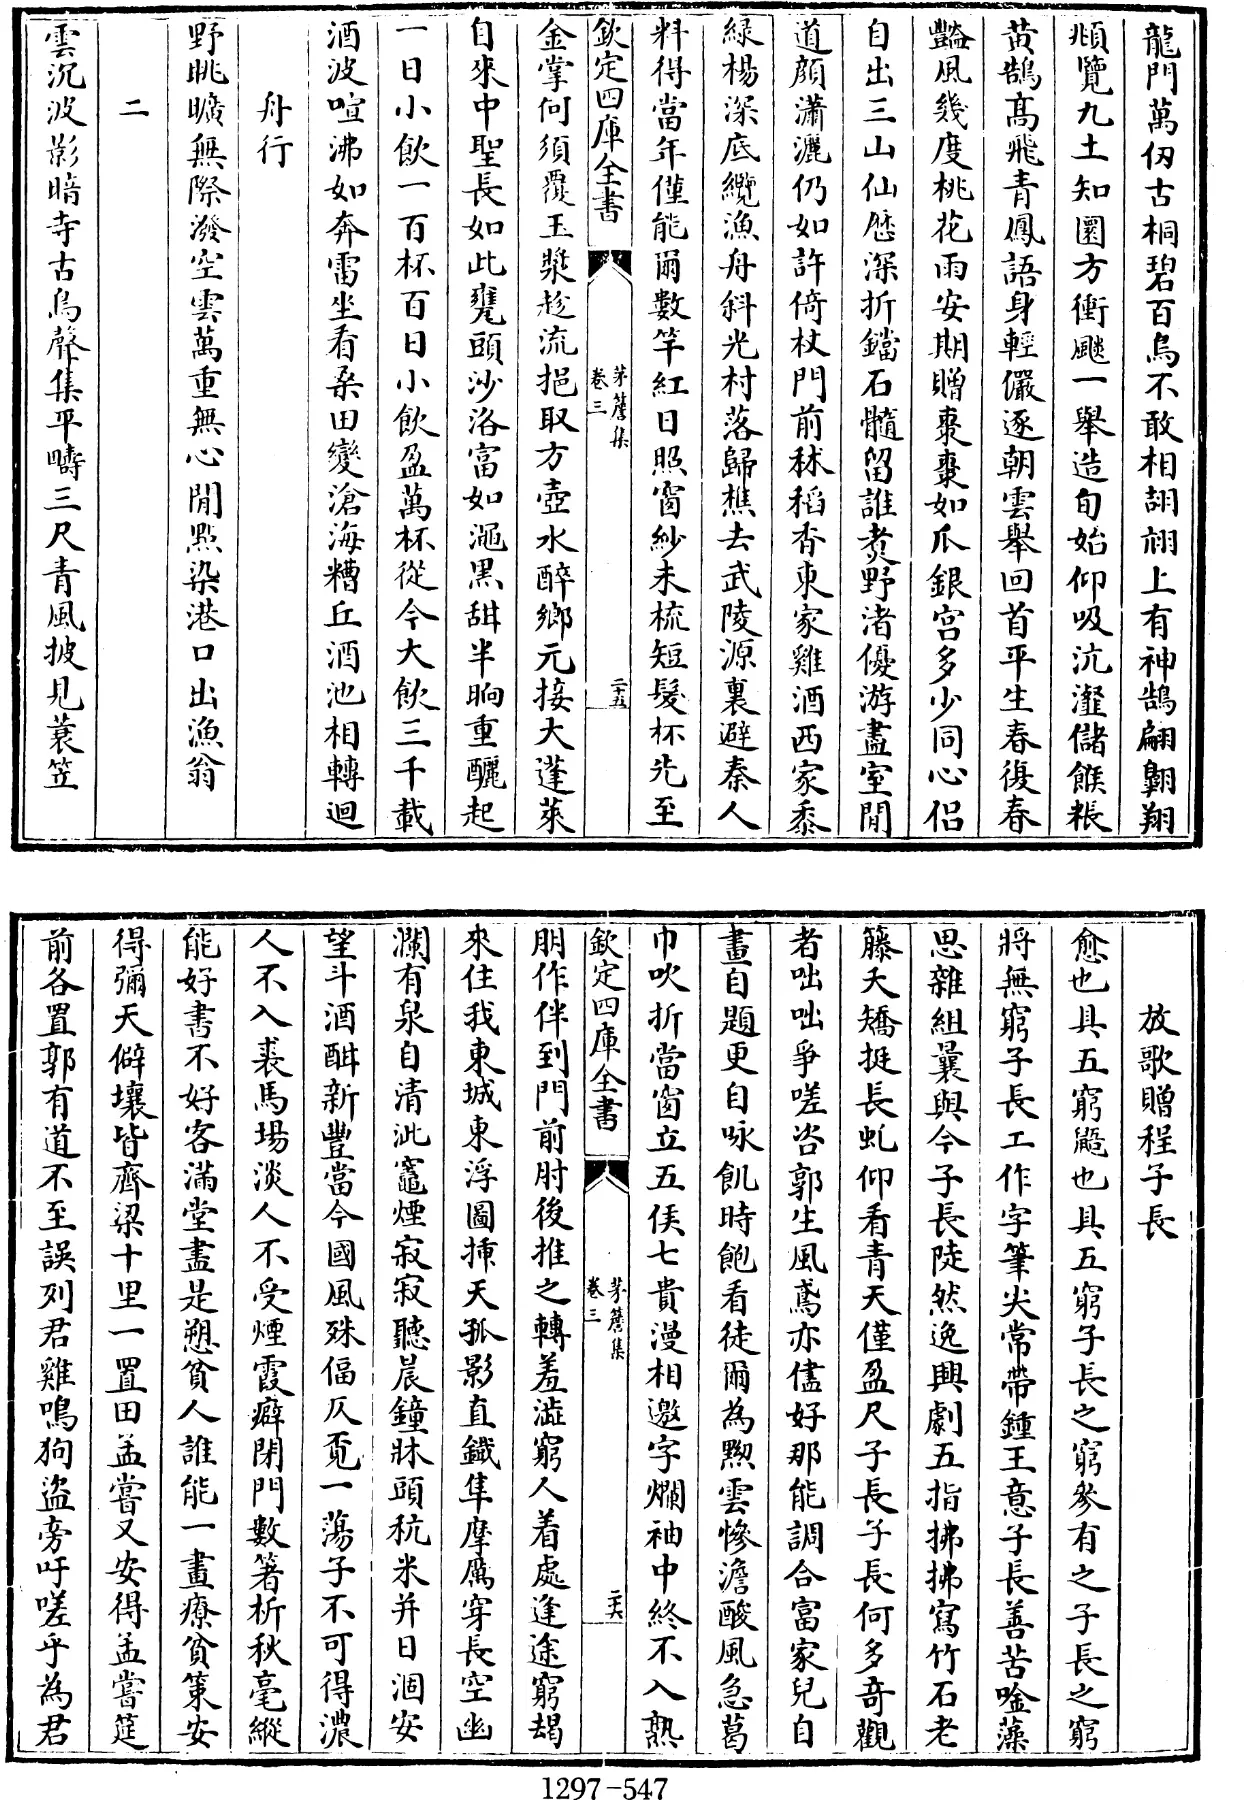 龍門萬仞古桐碧百鳥不敢相頡頏上有神鵠翩翾翔
頫覽九土知圜方衝飈一舉造旬始仰吸沆瀣儲餱粻
黃鵠高飛青鳳語身輕儼逐朝雲舉回首平生春復春
豔風幾度桃花雨安期贈棗棗如爪銀宮多少同心侣
自出三山仙歷深折鐺石髓留誰煑野渚優游盡室閒
道顔瀟灑仍如許倚杖門前秫稻香東家雞酒西家黍
緑楊深底纜漁舟斜光村落歸樵去武陵源裏避秦人
料得當年僅能爾數竿紅日照窗紗未梳短髮杯先至
欽定四庫全書
茅簷集
卷三
二十五
金掌何須覆玉漿趁流挹取方壺水醉鄉元接大蓬萊
自來中聖長如此甕頭沙洛富如澠黑甜半晌重釃起
一日小飲一百杯百日小飲盈萬杯從今大飲三千載
酒波喧沸如奔雷坐看桑田變滄海糟丘酒池相轉迴
舟行
野眺曠無際潑空雲萬重無心閒點染港口出漁翁
二
雲沉波影暗寺古鳥聲集平疇三尺青風披見蓑笠
放歌贈程子長
愈也具五窮颺也具五窮子長之窮參有之子長之窮
將無窮子長工作字筆尖常帶鍾王意子長善苦唫藻
思雜組曩與今子長陡然逸興劇五指拂拂寫竹石老
籐夭矯挺長虬仰看青天僅盈尺子長子長何多竒觀
者咄咄爭嗟咨郭生風鳶亦儘好那能調合富家兒自
畫自題更自咏飢時飽看徒爾為黙雲慘澹酸風急葛
巾吹折當窗立五侯七貴漫相邀字爛袖中終不入熟
欽定四庫全書
茅簷集
卷三
二十六
朋作伴到門前肘後推之轉羞澁窮人着處逢途窮朅
來住我東城東浮圖揷天孤影直鐵隼摩厲穿長空幽
瀾有泉自清泚竈煙寂寂聽晨鐘牀頭秔米并日涸安
望斗酒酣新豐當今國風殊偪仄覓一蕩子不可得濃
人不入裘馬場淡人不受煙霞癖閉門數箸析秋毫縱
能好書不好客滿堂盡是愬貧人誰能一畫療貧策安
得彌天僻壤皆齊梁十里一置田孟嘗又安得孟嘗筵
前各置郭有道不至誤列君雞鳴狗盜旁吁嗟乎為君
1297-547